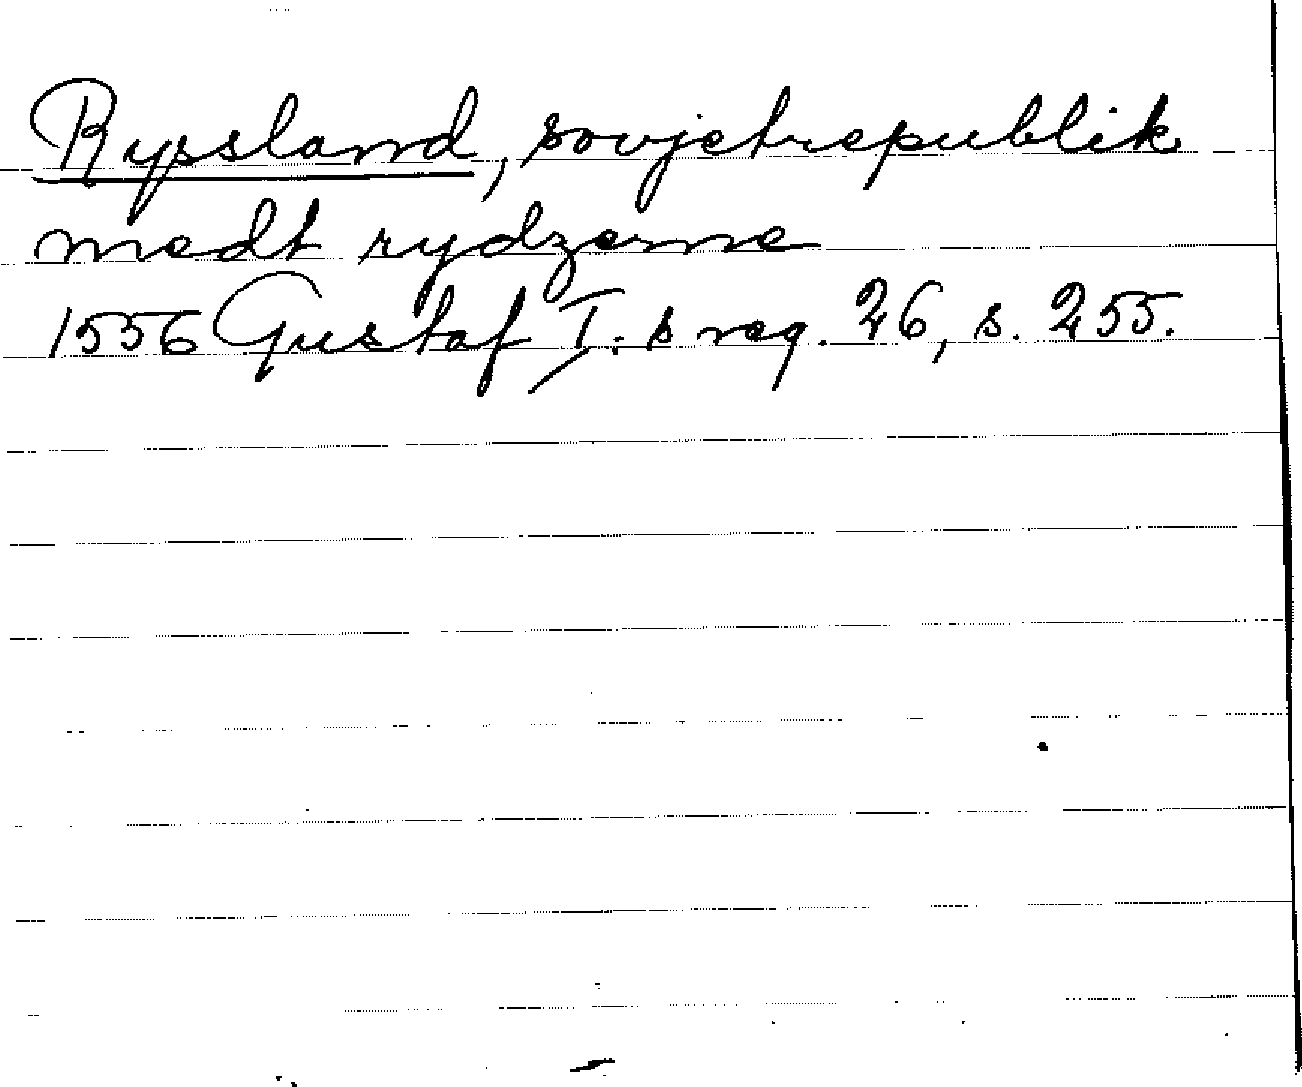 Ryssland, sovjetrepublik
medt rydzerne
1556 Gustaf I:s reg. 26, s. 255.